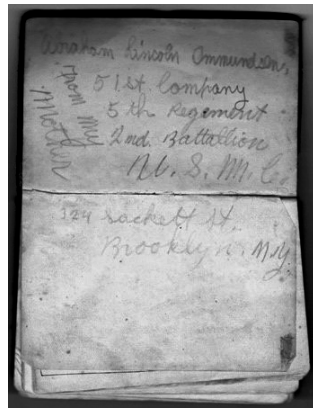 Abraham Lincoln Ommundson,
51st Company
5th Regement
2nd. Battallion
U. S. M. C.
from my
mother
324 Sackett St.
Brooklyn. N.Y.